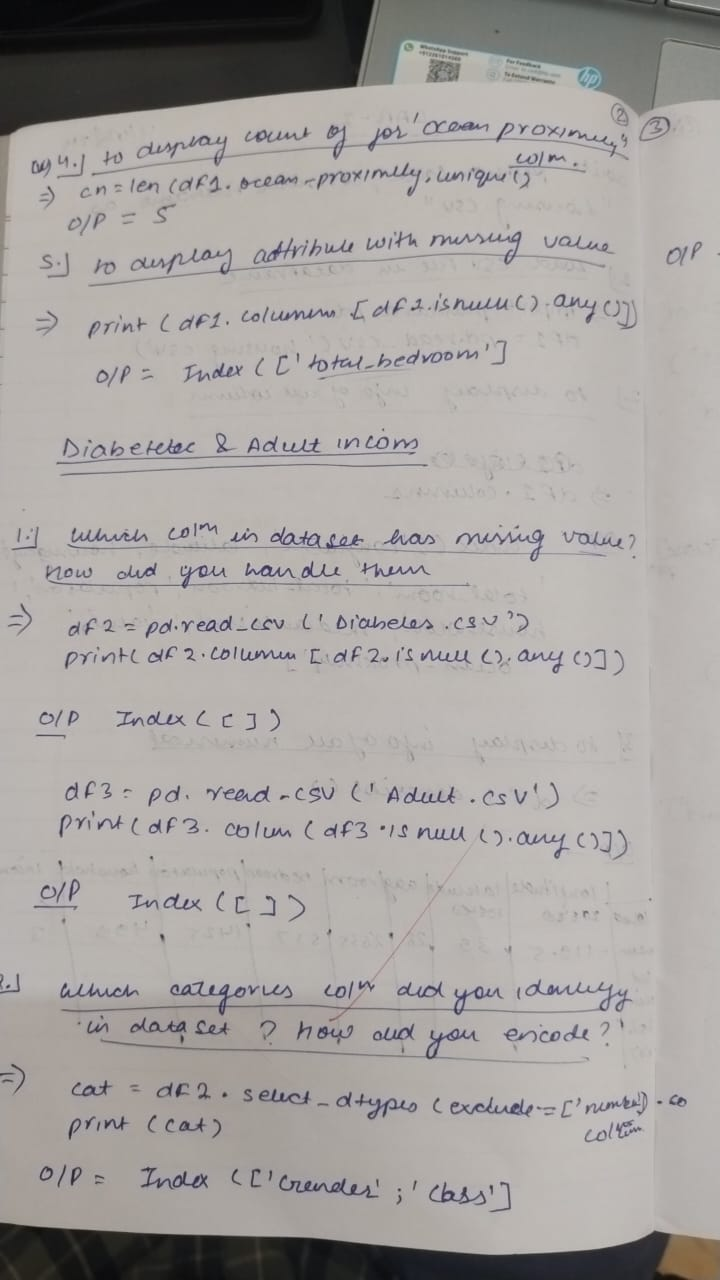 WhatsApp Support
For Feedback
To Extend Warranty
hp
②
③
Q4.] to display count of for 'ocean proximity'
colm.
⇒ cn = len (df1. ocean-proximity. unique()
O/P = 5
5.] to display attribute with missing value
O/P
⇒ print (df1. columns [df1.isnull(). any()])
O/P = Index (['total_bedroom']
Diabetetec & Adult incom
1.] which colm in dataset has missing value?
How did you handle them
⇒ df2 = pd.read_csv ('Diabetes.csv')
print( df2.column [df2.isnull(). any()])
O/P Index ([])
df3 = pd. read-csv ('Adult.csv')
print(df3. colum (df3.isnull().any()])
O/P Index ([])
2.] which categories colm did you idenify
in dataset ? how did you encode?
⇒ cat = df2. select_dtypes (exclude=['number']). co
colum
print (cat)
O/P = Index (['Gender' ; 'Class']